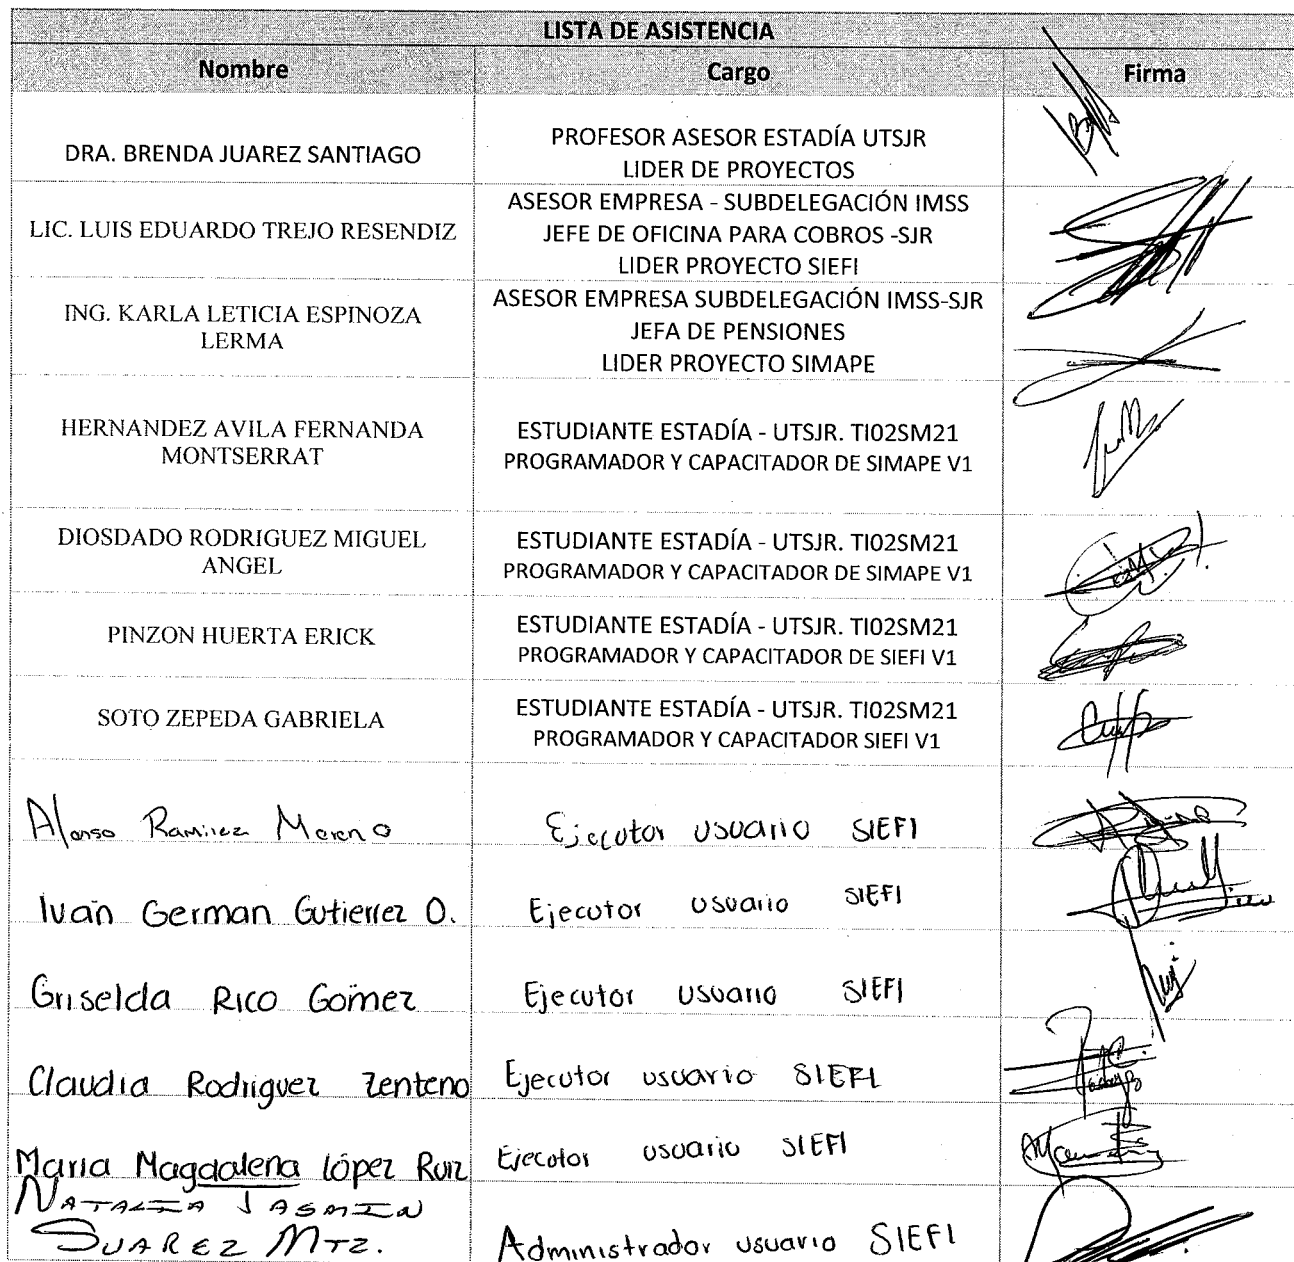 LISTA DE ASISTENCIA
Nombre Cargo Firma
DRA. BRENDA JUAREZ SANTIAGO
PROFESOR ASESOR ESTADÍA UTSJR
LIDER DE PROYECTOS
LIC. LUIS EDUARDO TREJO RESENDIZ
ASESOR EMPRESA - SUBDELEGACIÓN IMSS
JEFE DE OFICINA PARA COBROS -SJR
LIDER PROYECTO SIEFI
ING. KARLA LETICIA ESPINOZA
LERMA
ASESOR EMPRESA SUBDELEGACIÓN IMSS-SJR
JEFA DE PENSIONES
LIDER PROYECTO SIMAPE
HERNANDEZ AVILA FERNANDA
MONTSERRAT
ESTUDIANTE ESTADÍA - UTSJR. TI02SM21
PROGRAMADOR Y CAPACITADOR DE SIMAPE V1
DIOSDADO RODRIGUEZ MIGUEL
ANGEL
ESTUDIANTE ESTADÍA - UTSJR. TI02SM21
PROGRAMADOR Y CAPACITADOR DE SIMAPE V1
PINZON HUERTA ERICK
ESTUDIANTE ESTADÍA - UTSJR. TI02SM21
PROGRAMADOR Y CAPACITADOR DE SIEFI V1
SOTO ZEPEDA GABRIELA
ESTUDIANTE ESTADÍA - UTSJR. TI02SM21
PROGRAMADOR Y CAPACITADOR SIEFI V1
Alonso Ramirez Moreno Ejecutor usuario SIEFI
Ivan German Gutierrez O. Ejecutor usuario SIEFI
Griselda Rico Gómez Ejecutor usuario SIEFI
Claudia Rodriguez Zenteno Ejecutor usuario SIEFI
Maria Magdalena López Ruiz Ejecutor usuario SIEFI
NATALIA JASMIN
SUAREZ MTZ.
Administrador usuario SIEFI